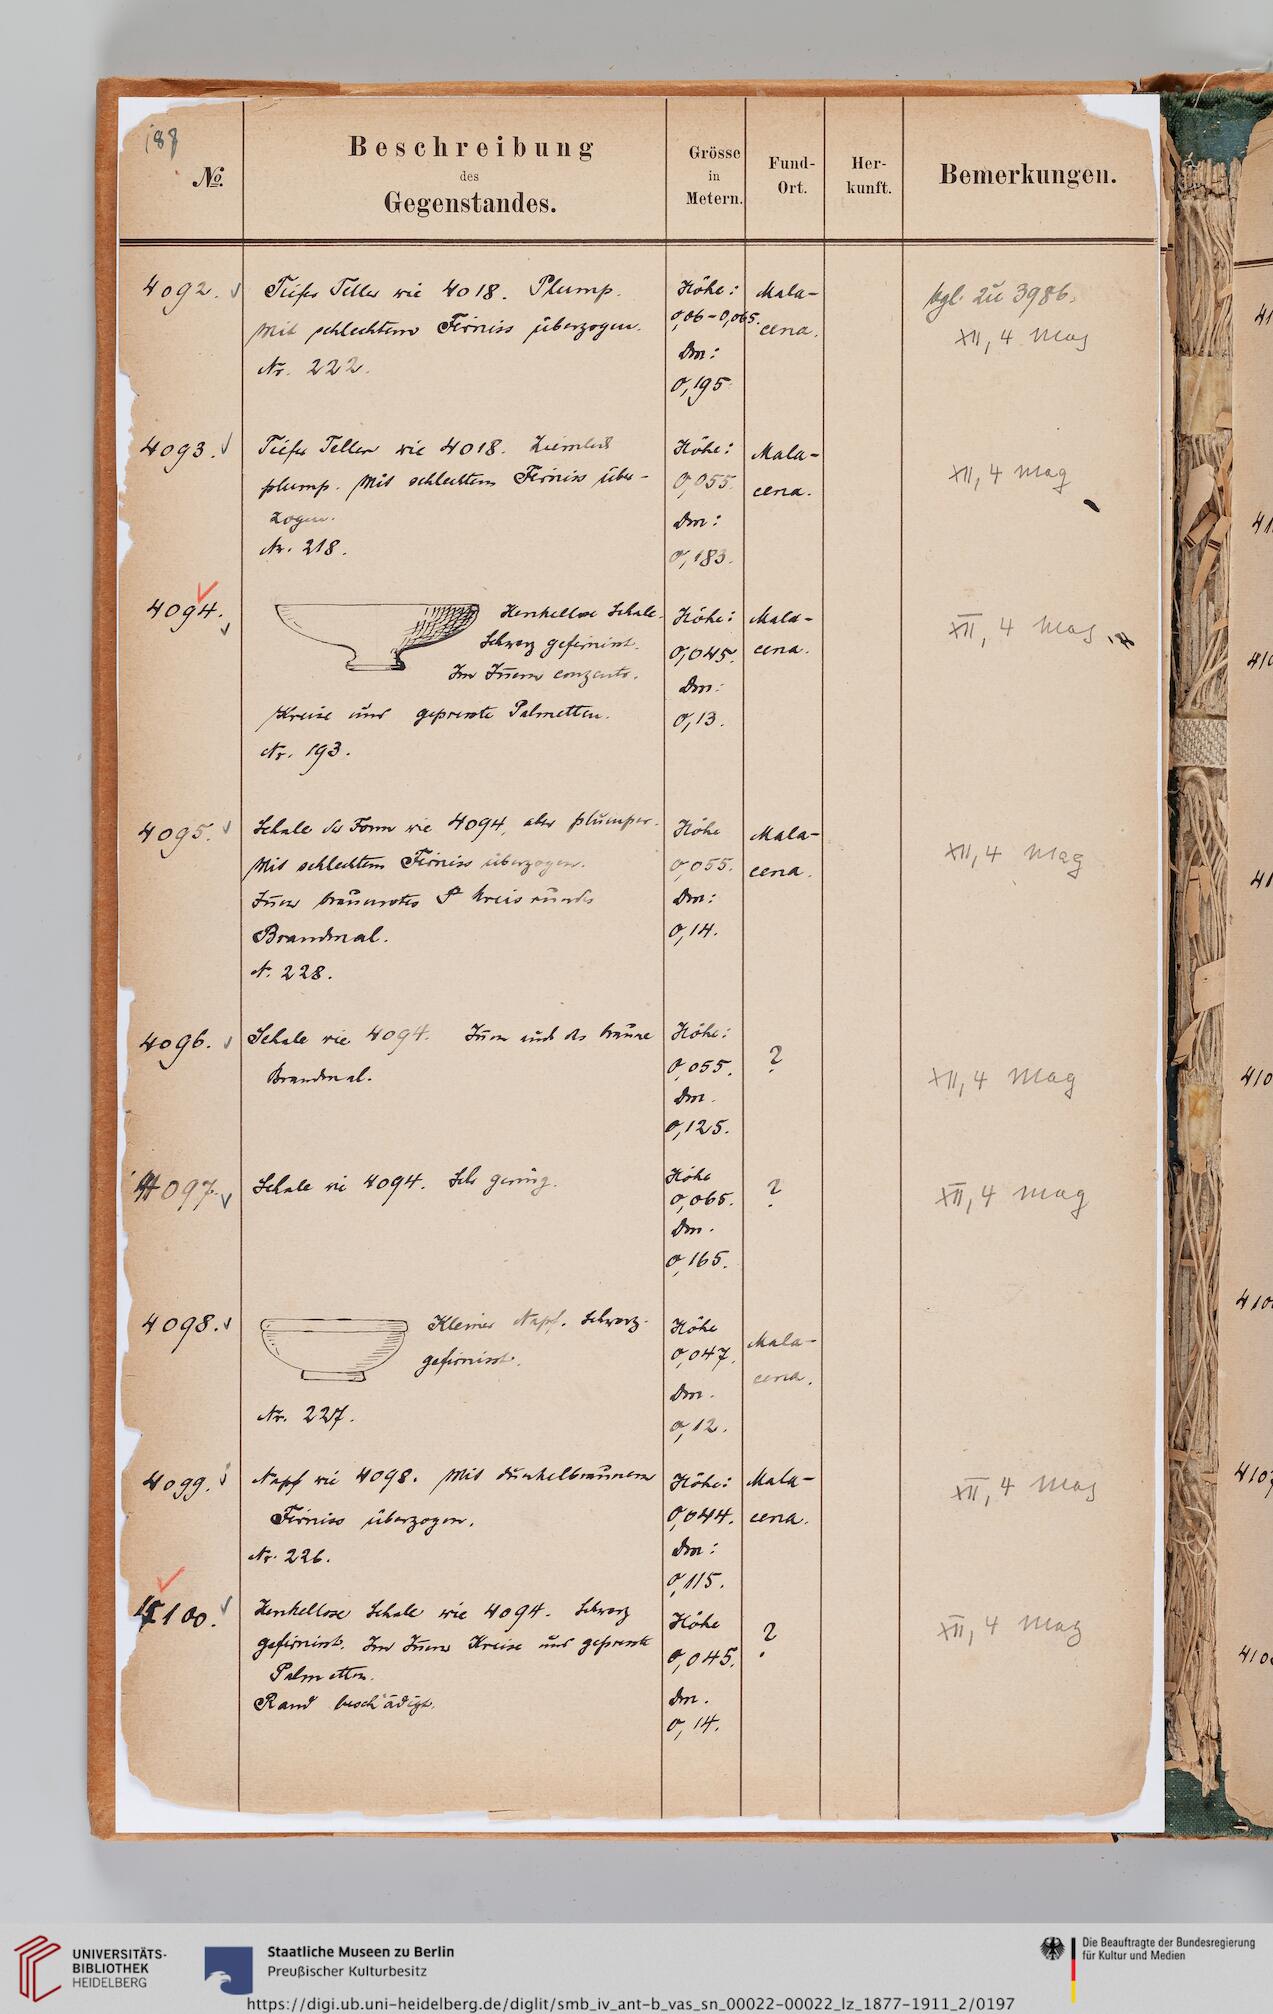 188
No.
Beschreibung
des
Gegenstandes.
Grösse
in
Metern.
Fund-
Ort.
Her-
kunft.
Bemerkungen.
4092.
Tiefer Teller wie 4018. Plump.
Mit schlechtem Firniss überzogen.
Nr. 222.
Höhe:
0,06-0,065.
Dm:
0,195.
Mala-
cena.
vgl. zu 3986.
XII, 4 Mag
4093.
Tiefer Teller wie 4018. Ziemlich
plump. Mit schlechtem Firniss über-
zogen.
Nr. 218.
Höhe:
0,055.
Dm:
0,183.
Mala-
cena.
XII, 4 Mag
4094.
Henkellose Schale.
Schwarz gefirnisst.
Im Innern conzentr.
Kreise und gepresste Palmetten.
Nr. 193.
Höhe:
0,045.
Dm:
0,13.
Mala-
cena.
XII, 4 Mag
4095.
Schale der Form wie 4094, aber plumper.
Mit schlechtem Firniss überzogen.
Innen braunrotes kreisrundes
Brandmal.
N. 228.
Höhe
0,055.
Dm:
0,14.
Mala-
cena.
XII, 4 Mag
4096.
Schale wie 4094. Innen auch das braune
Brandmal.
Höhe:
0,055.
Dm.
0,125.
?
XII, 4 Mag
4097.
Schale wie 4094. Sehr gering.
Höhe
0,065.
Dm.
0,165.
?
XII, 4 Mag
4098.
Kleiner Napf. Schwarz
gefirnisst.
Nr. 227.
Höhe
0,047.
Dm.
0,12.
Mala-
cena.
4099.
Napf wie 4098. Mit dunkelbraunem
Firniss überzogen.
Nr. 226.
Höhe:
0,044.
Dm:
0,115.
Mala-
cena.
XII, 4 Mag
4100.
Henkellose Schale wie 4094. Schwarz
gefirnisst. Im Innern Kreise und gepresste
Palmetten.
Rand beschädigt.
Höhe
0,045.
Dm.
0,14.
?
XII, 4 Mag
UNIVERSITÄTS-
BIBLIOTHEK
HEIDELBERG
Staatliche Museen zu Berlin
Preußischer Kulturbesitz
Die Beauftragte der Bundesregierung
für Kultur und Medien
https://digi.ub.uni-heidelberg.de/diglit/smb_iv_ant-b_vas_sn_00022-00022_lz_1877-1911_2/0197